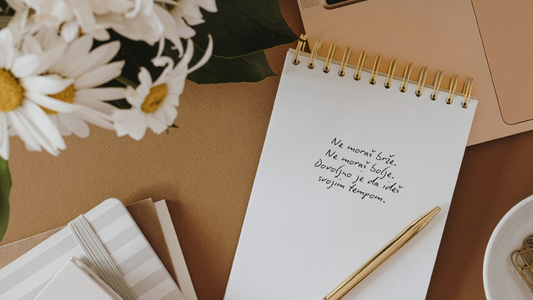 Ne moraš brže.
Ne moraš bolje.
Dovoljno je da ideš
svojim tempom.